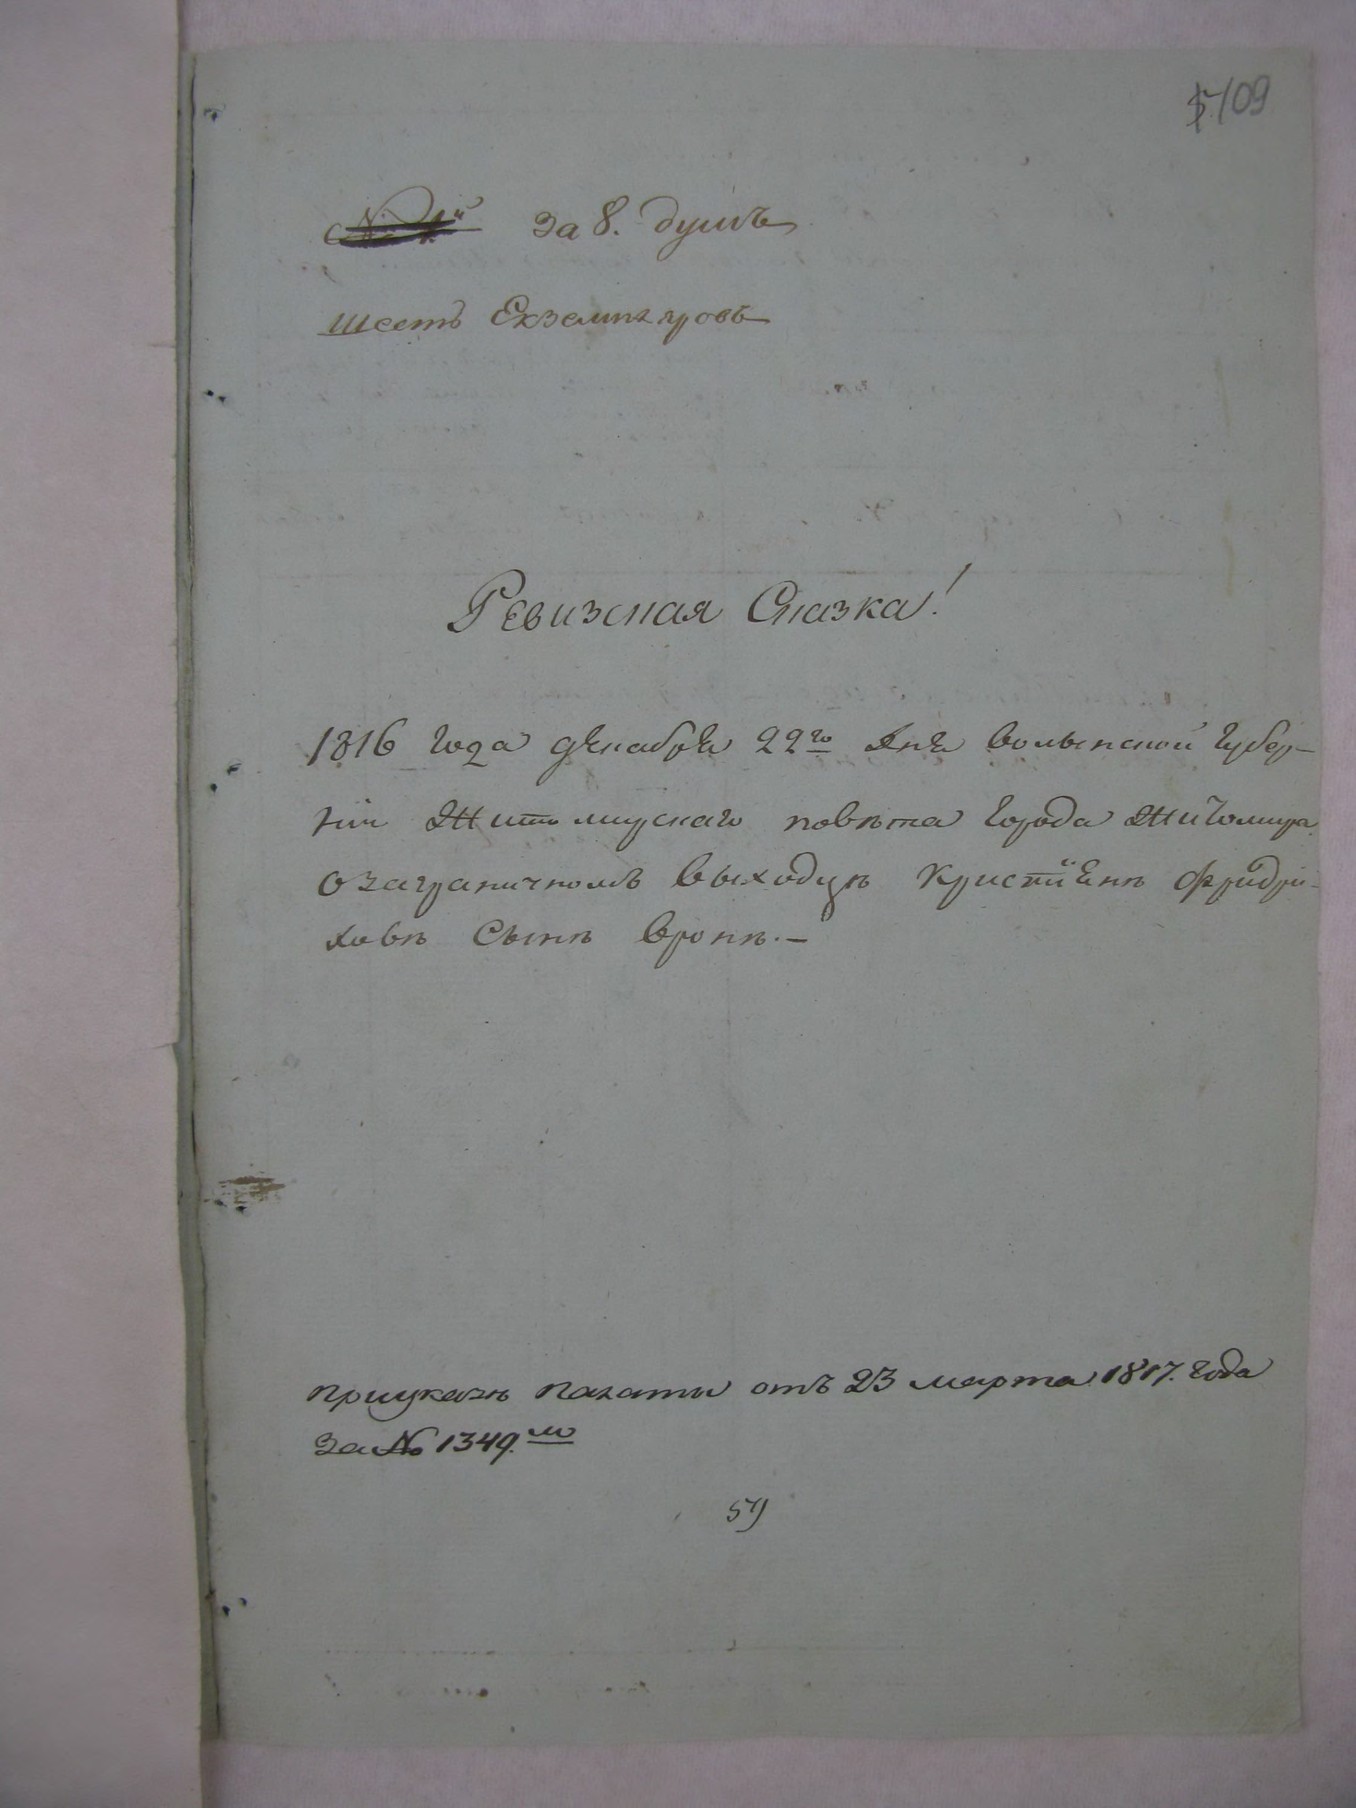 109
за 8. душъ
шесть Екземпляровъ
Ревизская Сказка!
1816 года декабря 22го дня Волынской Губер-
нии Житомирскаго повѣта Города Житомира
о заграничномъ выходцѣ Кристиѣнѣ Фридри-
ховѣ Сынѣ Вронѣ.—
при указѣ палаты отъ 23 марта 1817. года
за № 1349.мъ